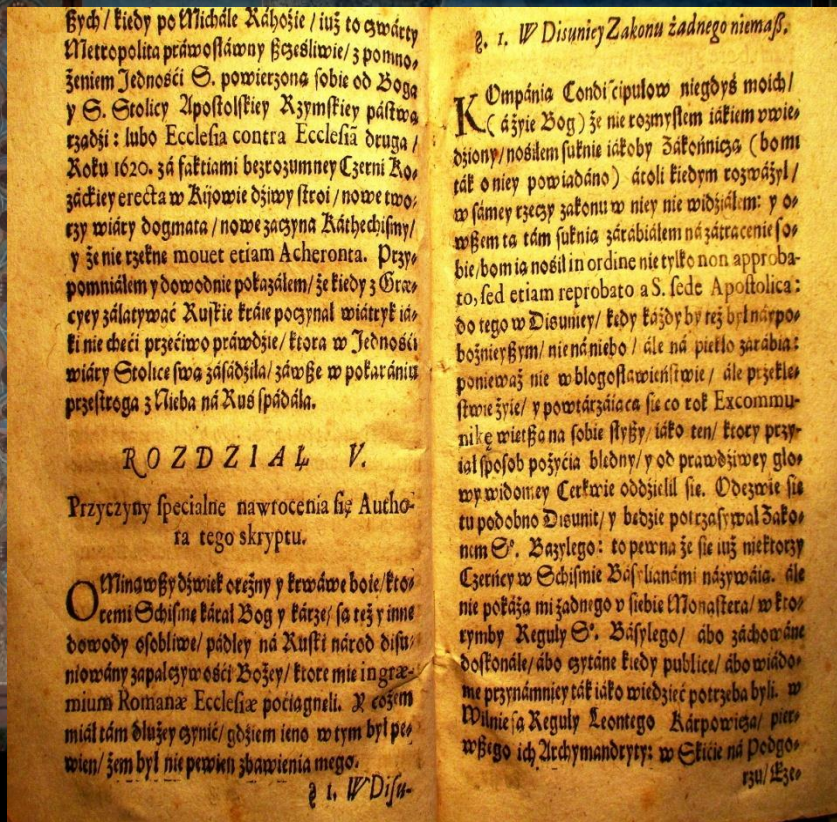 ßych/ kiedy po Michále Ráhoźie/ iuż to czwárty
Metropolitá práwosławny ßcześliwie/ z pomno-
żeniem Jednośći S. powierzoną sobie od Bogá
y S. Stolicy Apostolskiey Rzymskiey pástwą
rządźi: lubo Ecclesia contra Ecclesiã druga/
Roku 1620. zá fakťiami bezrozumney Czerni Ko-
záckiey erecta w Kijowie dźiwy stroi/ nowe two-
rzy wiáry dogmata/ nowe záczyna Káthechismy/
y że nie rzekne mouet etiam Acheronta. Przy-
pomniałem y dowodnie pokazałem/ że kiedy z Græ-
cyey zálátywáć Ruskie kráie poczynał wiátryk iá-
ki niecheći przećiwo práwdźie/ ktora w Jednośći
wiáry Stolice swą zásádźiłá/ záwße w pokarániu
przestrogá z Niebá ná Ruś spádáłá.
ROZDZIAŁ V.
Przyczyny specialne nawrocenia się Autho-
ra tego skryptu.
OMinąwßy dźwiek orężny y krwáwe boie/ kto-
remi Schisme karał Bog y karze/ są też y inne
dowody osobliwe/ pádłey ná Ruski národ disu-
niowány zápalczywośći Bożey/ ktore mie in græ-
mium Romanæ Ecclesiæ poćiągneli. Y cożem
miał tám dłużey czynić/ gdźiem ieno w tym był pe-
wien/ żem był nie pewien zbáwienia mego.
§ 1. W Disu-
§. 1. W Disuniey Zakonu żadnego niemaß.
KOmpánia Condiscipulow niegdyś moich/
(á żyie Bog) że nie rozmysłem iákiem vwie-
dźiony/ nośiłem suknie iákoby Zakonniczą (bo mi
ták o niey powiádáno) átoli kiedym rozważył/
w sámey rzeczy zakonu w niey nie widźiałem: y o-
wßem tą tám suknią zárábiałem ná zátrácenie so-
bie/ bom ią nośił in ordine nie tylko non approba-
to, sed etiam reprobato a S. sede Apostolica:
do tego w Disuniey/ kędy káżdy by też był nárpo-
bożnieyßym/ nie ná niebo/ ále ná piekło zárábia:
poniewáż nie w błogosławieństwie/ ále przekle-
stwie żyie/ y powtárzáiącą sie co rok Excommu-
nikę wietßą ná sobie słyßy/ iáko ten/ ktory przy-
iał sposob pożyćia błędny/ y od prawdźiwey gło-
wy widomey Cerkwie oddźielił sie. Odezwie sie
tu podobno Disunit/ y będźie potrzásywał Zako-
nem Sº. Bázylego: to pewna że sie iuż niektorzy
Czerńcy w Schismie Básylianámi názywáią. ále
nie pokażą mi żadnego v siebie Monásterá/ w kto-
rymby Reguły Sº. Básylego/ ábo záchowáne
doskonále/ ábo czytáne kiedy publice/ ábo wiádo-
me przynámniey ták iáko wiedzieć potrzebá byli. w
Wilnie są Reguły Leontego Kárpowiczá/ pier-
wßego ich Archymándryty: w Skićie ná Podgo-
rzu/ Eze-